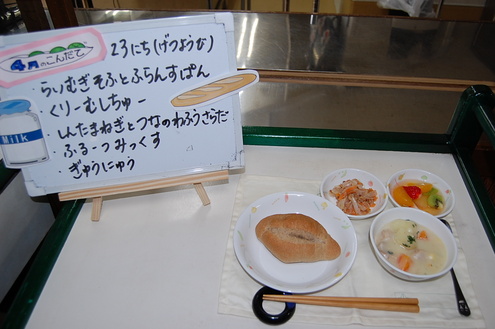 4月のこんだて 23にち(げつようび)
・らいむぎそふとふらんすぱん
・くりーむしちゅー
・しんたまねぎとつなのわふうさらだ
・ふるーつみっくす
・ぎゅうにゅう
Milk